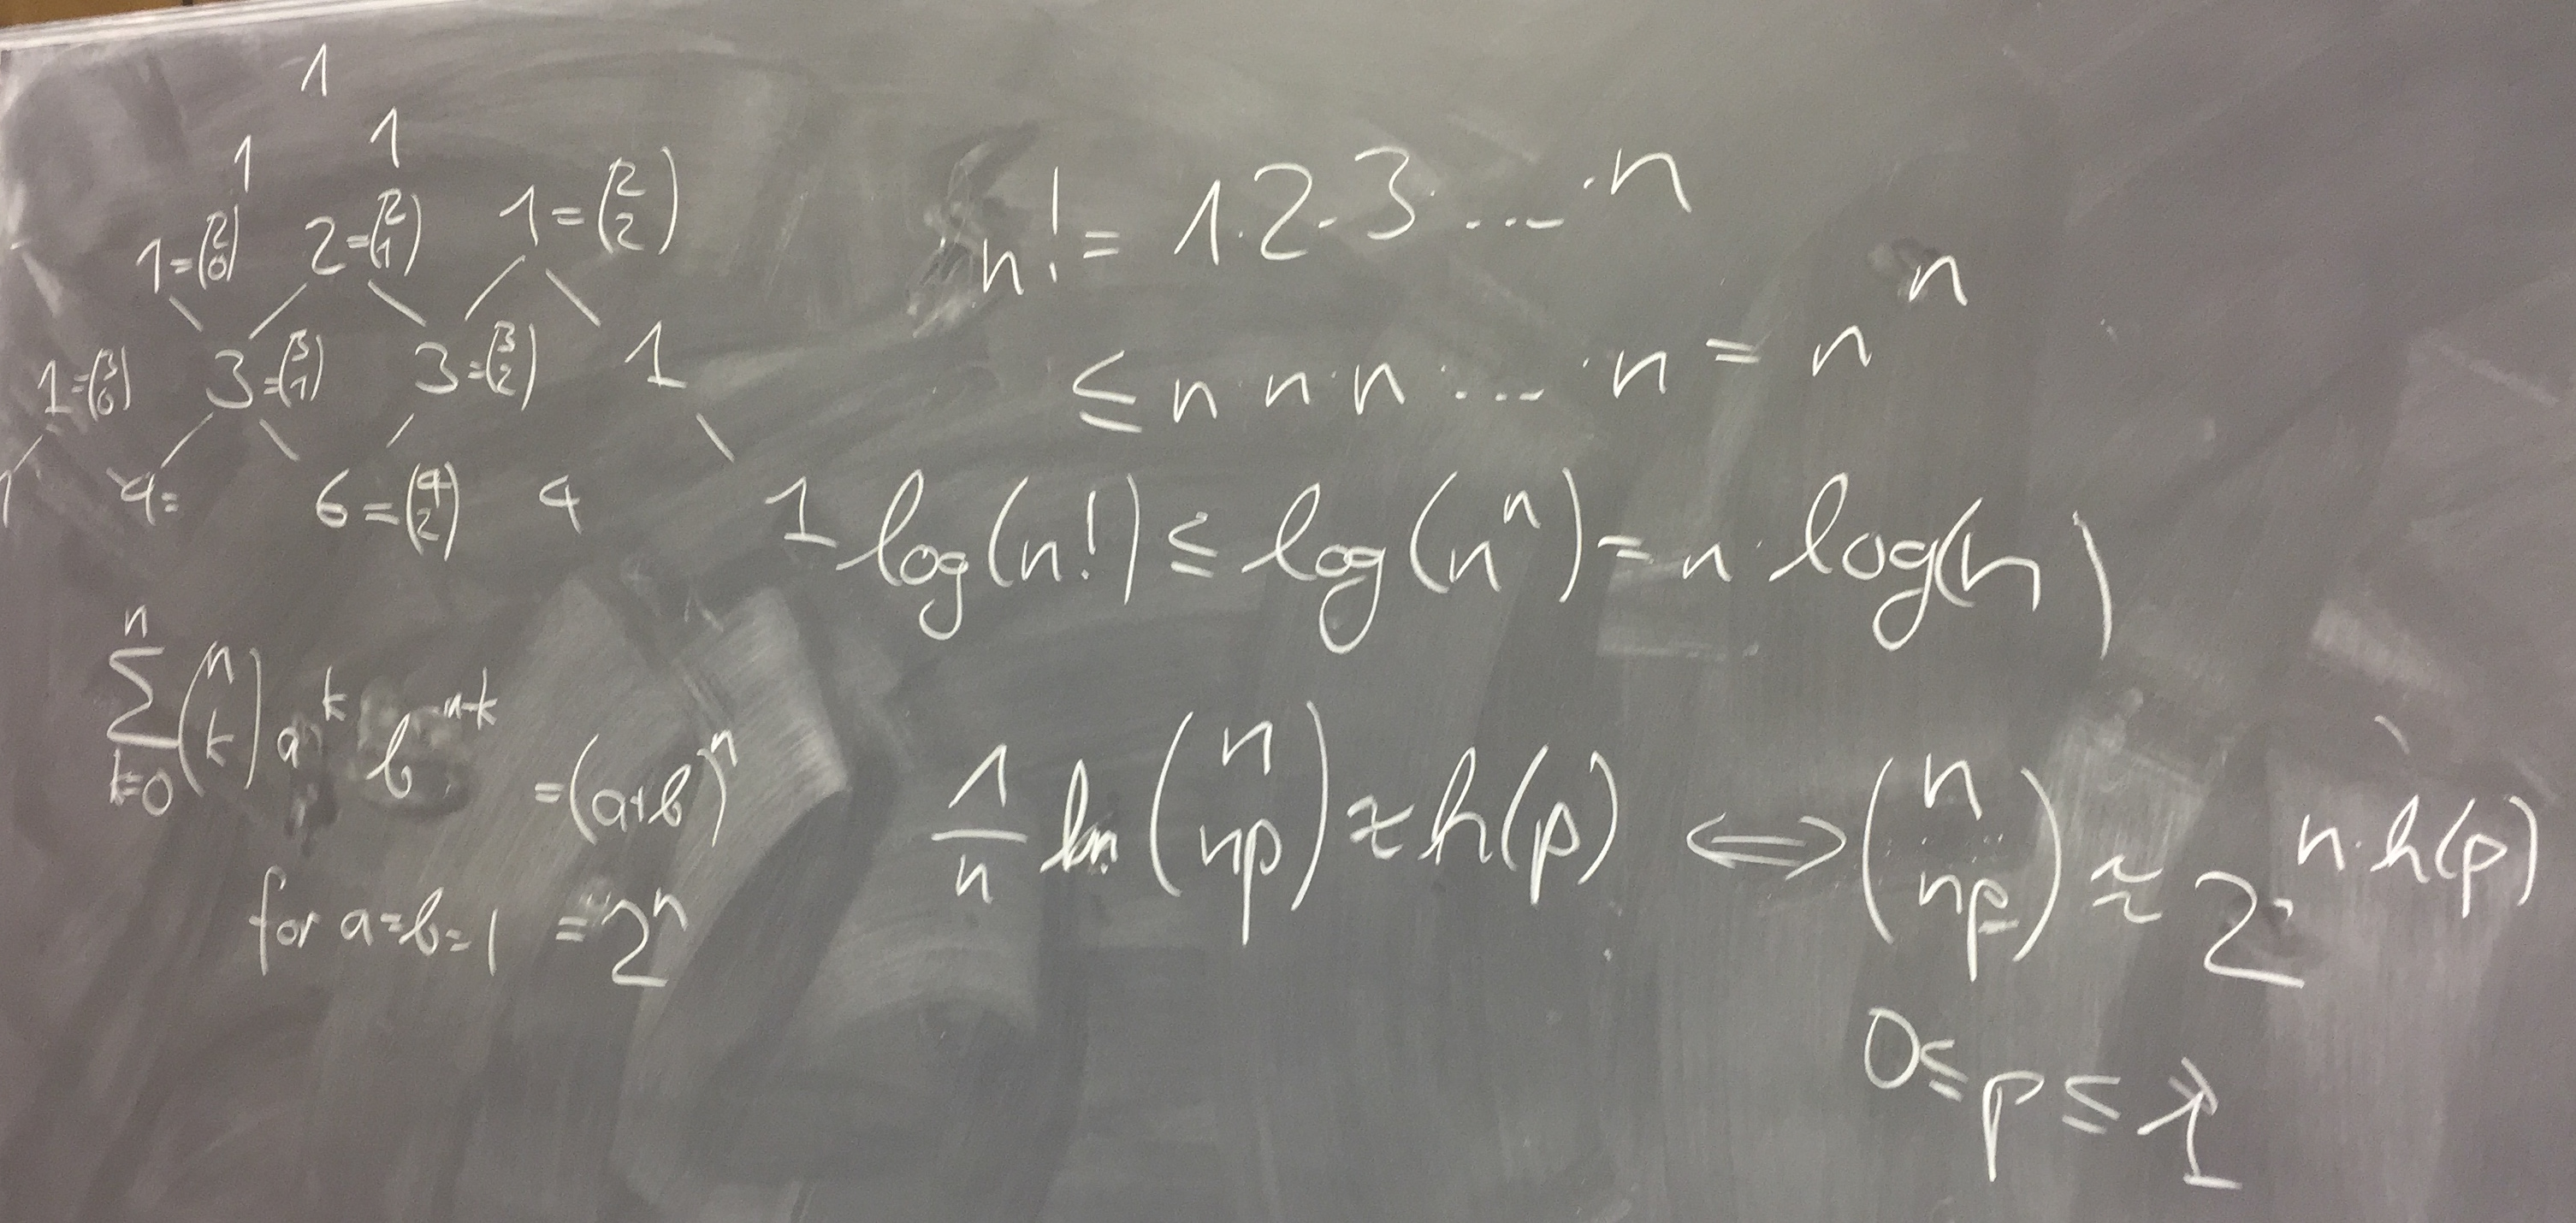 1
1 1
1=(2 0) 2=(2 1) 1=(2 2)
1=(3 0) 3=(3 1) 3=(3 2) 1
1 4= 6=(4 2) 4 1
n! = 1·2·3·...·n
≤ n·n·n·...·n = n^n
log(n!) ≤ log(n^n) = n·log(n)
∑_{k=0}^{n} (n k) a^k b^{n-k} = (a+b)^n
for a=b=1 = 2^n
1/n ln (n np) ≈ h(p) ⟺ (n np) ≈ 2^{n·h(p)}
0 ≤ p ≤ 1